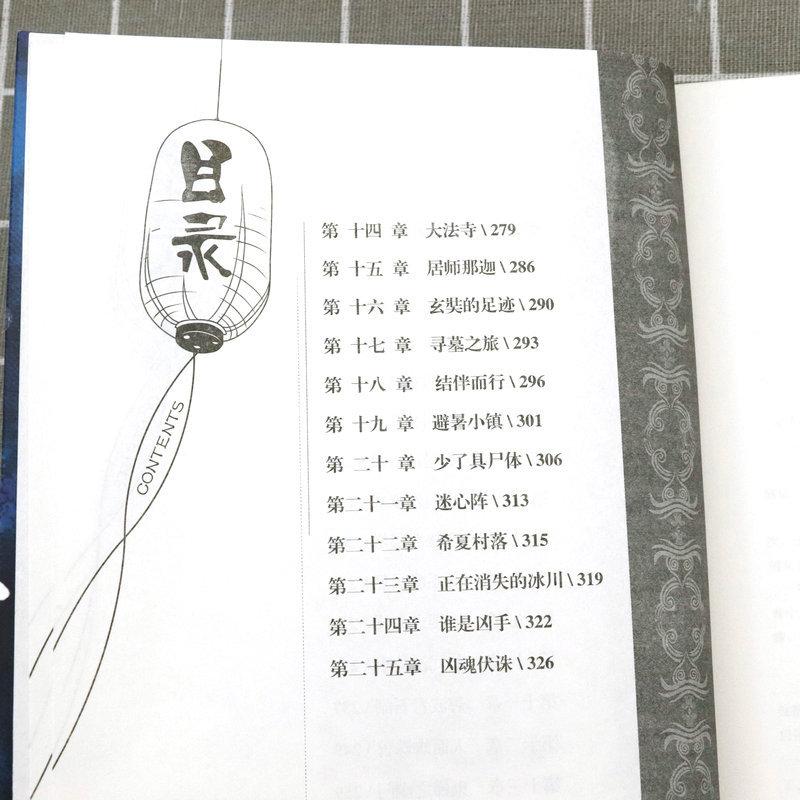 目录
CONTENTS
第 十四 章 大法寺 \ 279
第 十五 章 居师那迦 \ 286
第 十六 章 玄奘的足迹 \ 290
第 十七 章 寻墓之旅 \ 293
第 十八 章 结伴而行 \ 296
第 十九 章 避暑小镇 \ 301
第 二十 章 少了具尸体 \ 306
第二十一章 迷心阵 \ 313
第二十二章 希夏村落 \ 315
第二十三章 正在消失的冰川 \ 319
第二十四章 谁是凶手 \ 322
第二十五章 凶魂伏诛 \ 326